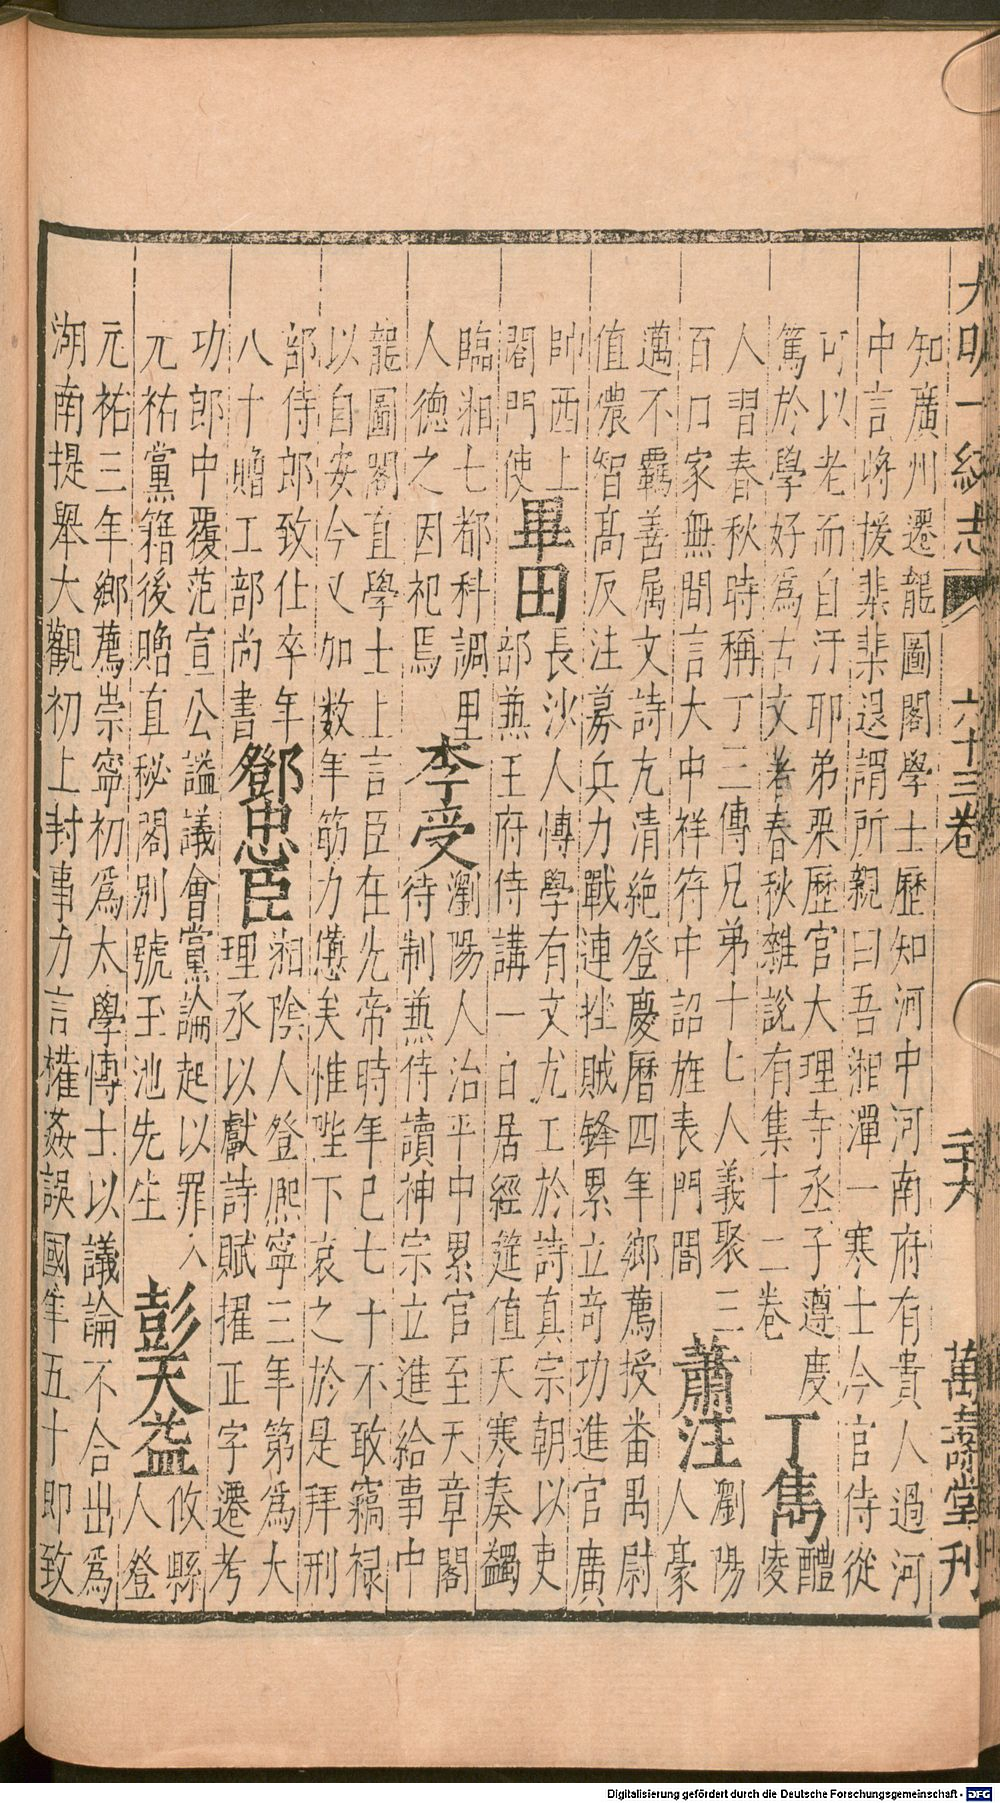 大明一統志 六十三卷 二十六 萬壽堂刊
知廣州遷龍圖閣學士歷知河中河南府有貴人過河
中言將援棐棐退謂所親曰吾湘潭一寒士今官侍從
可以老而自汙耶弟棐歷官大理寺丞子遵慶
篤於學好為古文著春秋雜說有集十二卷
丁雋
醴
陵
人習春秋時稱丁三傳兄弟十七人義聚三
百口家無間言大中祥符中詔旌表門閭
蕭注
瀏陽
人豪
邁不羈善属文詩尤清絶登慶曆四年鄉薦授番禺尉
值儂智高反注募兵力戰連挫賊鋒累立奇功進官廣
帥西上
閤門使
畢田
長沙人博學有文尤工於詩真宗朝以吏
部兼王府侍講一日居經筵值天寒奏蠲
臨湘七都科調里
人德之因祀焉
李受
瀏陽人治平中累官至天章閣
待制兼侍讀神宗立進給事中
龍圖閣直學士上言臣在先帝時年已七十不敢竊祿
以自安今又加数年筋力憊矣惟陛下哀之於是拜刑
部侍郎致仕卒年
八十贈工部尚書
鄧忠臣
湘陰人登熙寧三年第為大
理丞以獻詩賦擢正字遷考
功郎中覆范宣公謚議會黨論起以罪入
元祐黨籍後贈直秘閣別號玉池先生
彭天益
攸縣
人登
元祐三年鄉薦崇寧初為太學博士以議論不合出為
湖南提舉大觀初上封事力言權姦誤國年五十即致
Digitalisierung gefördert durch die Deutsche Forschungsgemeinschaft - DFG